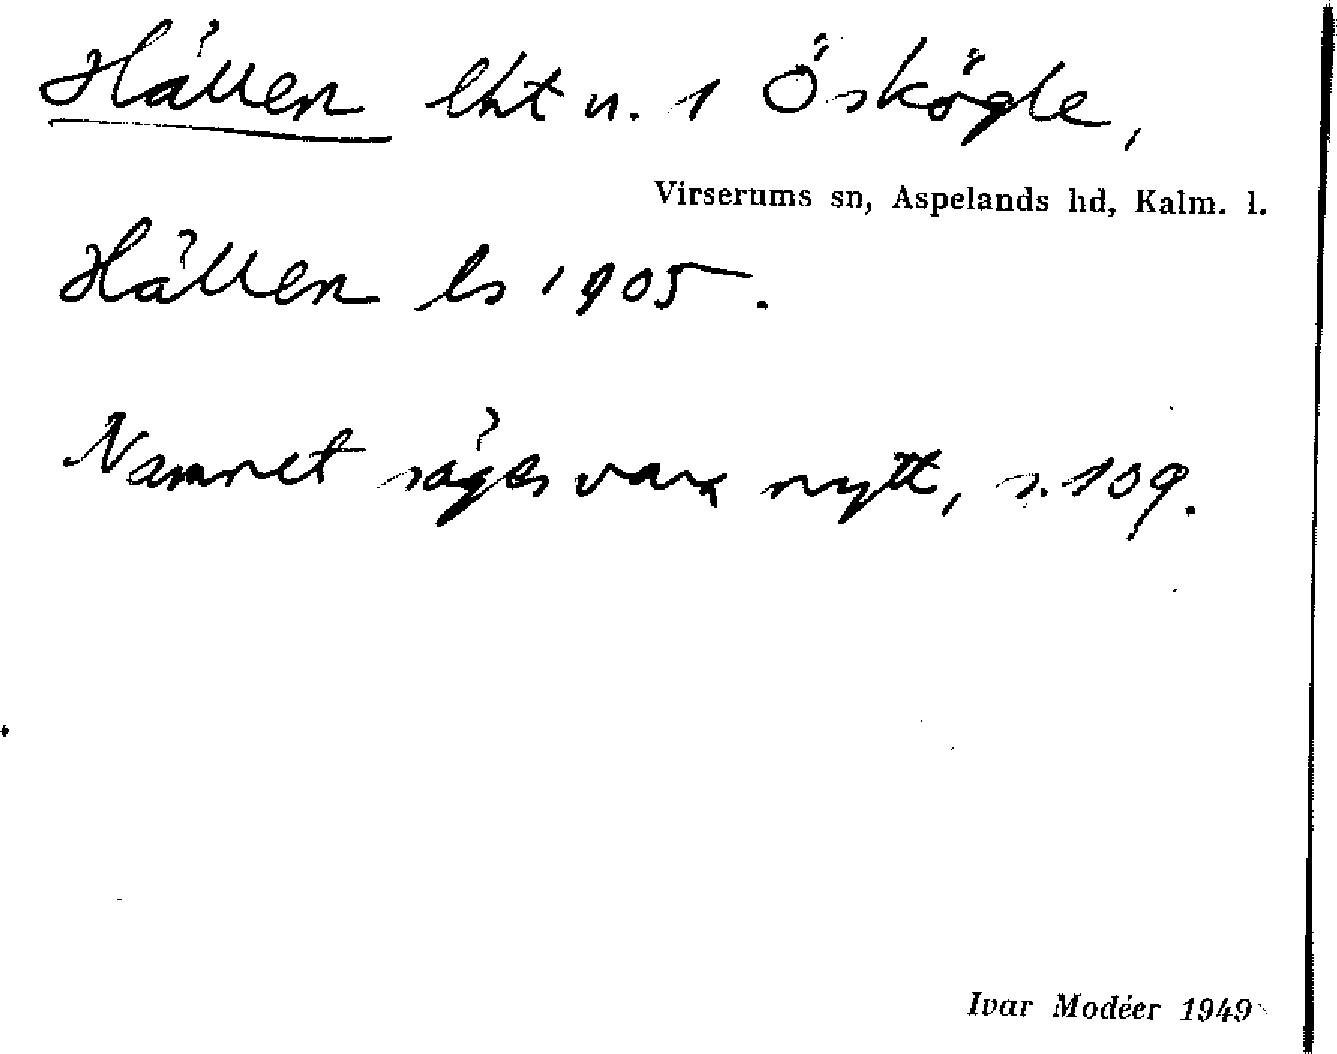 Hällen lht u. 1 Öskögle,
Virserums sn, Aspelands hd, Kalm. l.
Hällen ls 1905.
Namnet säges vara nytt, s. 109.
Ivar Modéer 1949